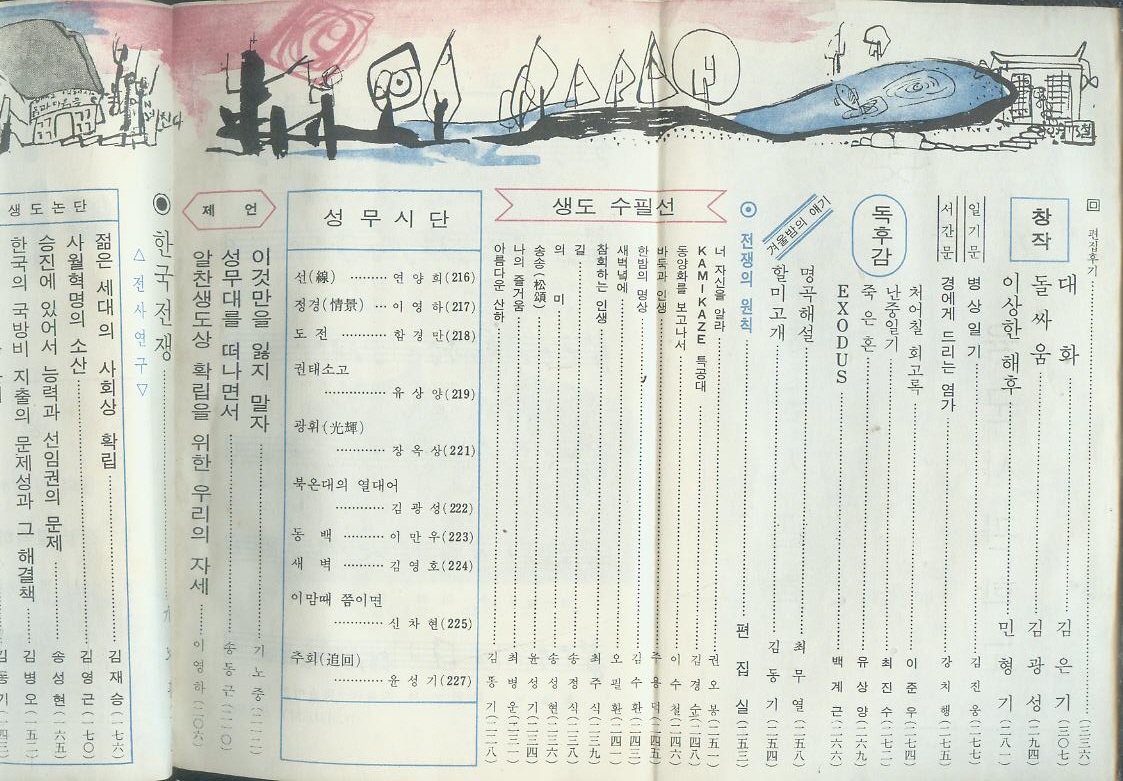 편집후기 (三三六)
창작
대화 김은기 (三〇七)
돌싸움 김광성 (二九四)
이상한 해후 민형기 (二八一)
일기문
병상일기 김진웅 (二七七)
서간문
경에게 드리는 염가 강치행 (二七五)
독후감
처어칠 회고록 이준우 (二七四)
난중일기 최진수 (二七二)
죽은혼 유상양 (二六九)
EXODUS 백계근 (二六六)
겨울밤의 얘기
명곡해설 최무열 (二五八)
할미고개 김동기 (二五四)
전쟁의 원칙 편집실 (二五三)
생도 수필선
너 자신을 알라 권오봉 (二五一)
KAMIKAZE 특공대
동양화를 보고나서 이수철 (二四六)
바둑과 인생
한밤의 명상 김수환 (二四三)
새벽녘에 오필환
참회하는 인생 최주식 (二三九)
길 송정식 (二三八)
의미 송성현 (二三六)
송송(松頌) 윤성기 (二三四)
나의 즐거움 최병운 (二三一)
아름다운 산하 김동기 (二二八)
성무시단
선(線) 연양희(216)
정경(情景) 이영하(217)
도전 함경만(218)
권태소고
유상양(219)
광휘(光輝)
장옥상(221)
북온대의 열대어
김광성(222)
동백 이만우(223)
새벽 김영호(224)
이맘때 쯤이면
신차현(225)
추회(追回)
윤성기(227)
제언
이것만을 잃지 말자 기노중 (二一二)
성무대를 떠나면서 송동근 (二一〇)
알찬생도상 확립을 위한 우리의 자세 이영하 (二〇六)
한국전쟁
△전사연구▽
생도논단
젊은 세대의 사회상 확립 김재승 (一七六)
사월혁명의 소산 김영근 (一七〇)
승진에 있어서 능력과 선임권의 문제 송성현 (一六五)
한국의 국방비 지출의 문제성과 그 해결책 김병오 (一五二)
김동기 (一四三)